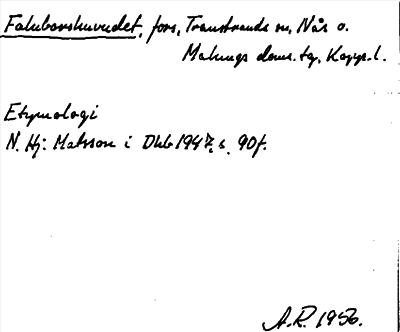 Faluborshuvudet, fors, Transtrands sn, Nås o.
Malungs doms. tg, Kopp. l.
Etymologi
N. Hj: Matsson i Dhb 1947, s. 90f.
A.R. 1956.